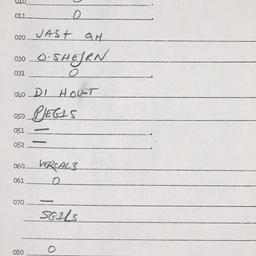 010
011 0
020 JAST GH
030 O-SHEJRN
031 0
040 DI HOUT
050 PJEGIS
051 —
052 —
060 VERGAL3
061 0
070 —
SGILS
080 0